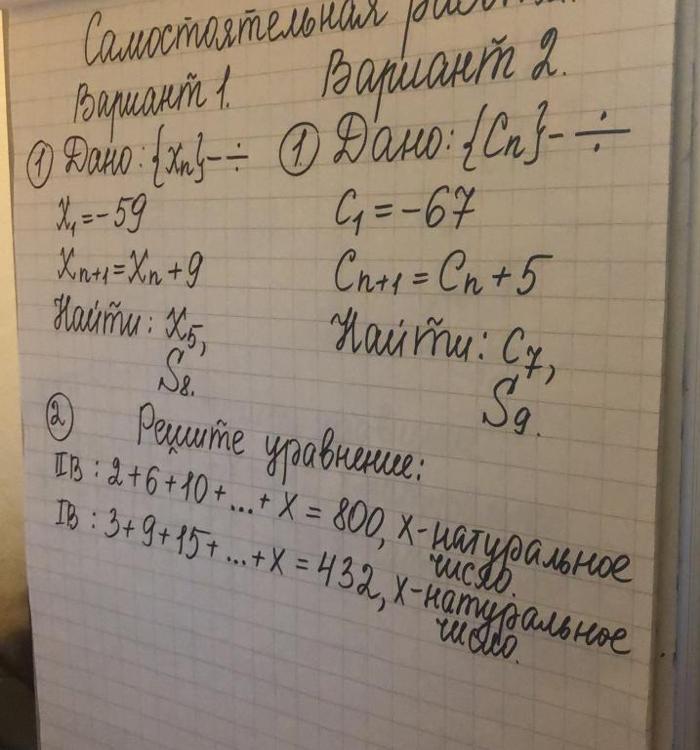 Самостоятельная работа.
Вариант 1.
① Дано: {xₙ} - ÷
x₁ = -59
xₙ₊₁ = xₙ + 9
Найти: x₅,
S₈.
Вариант 2.
① Дано: {Cₙ} - ÷
C₁ = -67
Cₙ₊₁ = Cₙ + 5
Найти: C₇,
S₉.
② Решите уравнение:
IIВ: 2+6+10+...+x = 800, x-натуральное
число.
IВ: 3+9+15+...+x = 432, x-натуральное
число.